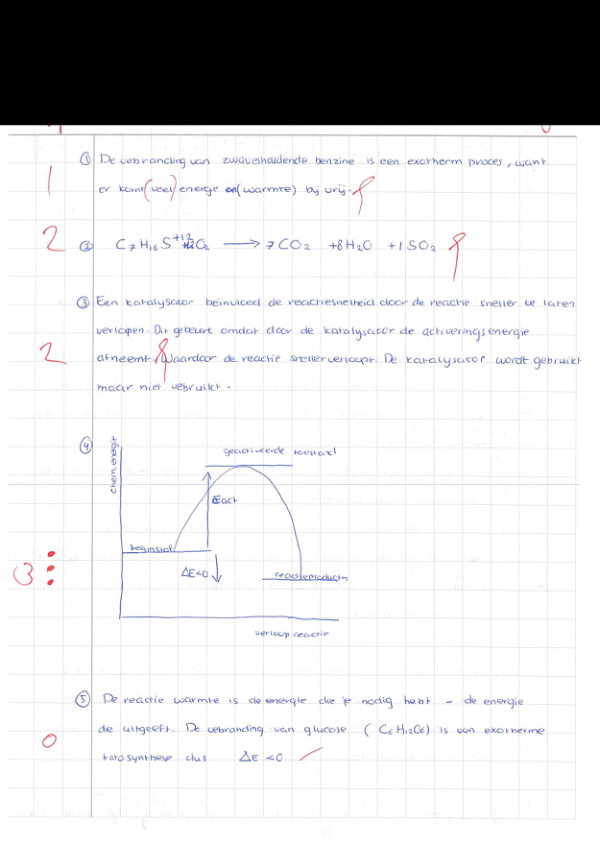 ① De verbranding van zwavelhoudende benzine is een exotherm proces, want
1 er komt (veel) energie en (warmte) bij vrij.
2 ② C7H16S + 12 O2 → 7 CO2 + 8 H2O + 1 SO2
③ Een katalysator beinvloed de reactiesnelheid door de reactie sneller te laten
verlopen. Dit gebeurt omdat door de katalysator de activeringsenergie
2 afneemt. Waardoor de reactie sneller verloopt. De katalysator wordt gebruikt
maar niet verbruikt -
④
chem. energie
geactiveerde toestand
Eact
beginstof
3 ΔE<0 reactieproducten
verloop reactie
⑤ De reactie warmte is de energie die je nodig hebt - de energie
die uitgeeft. De verbranding van glucose (C6H12O6) is een exotherme
0 fotosynthese dus ΔE <0